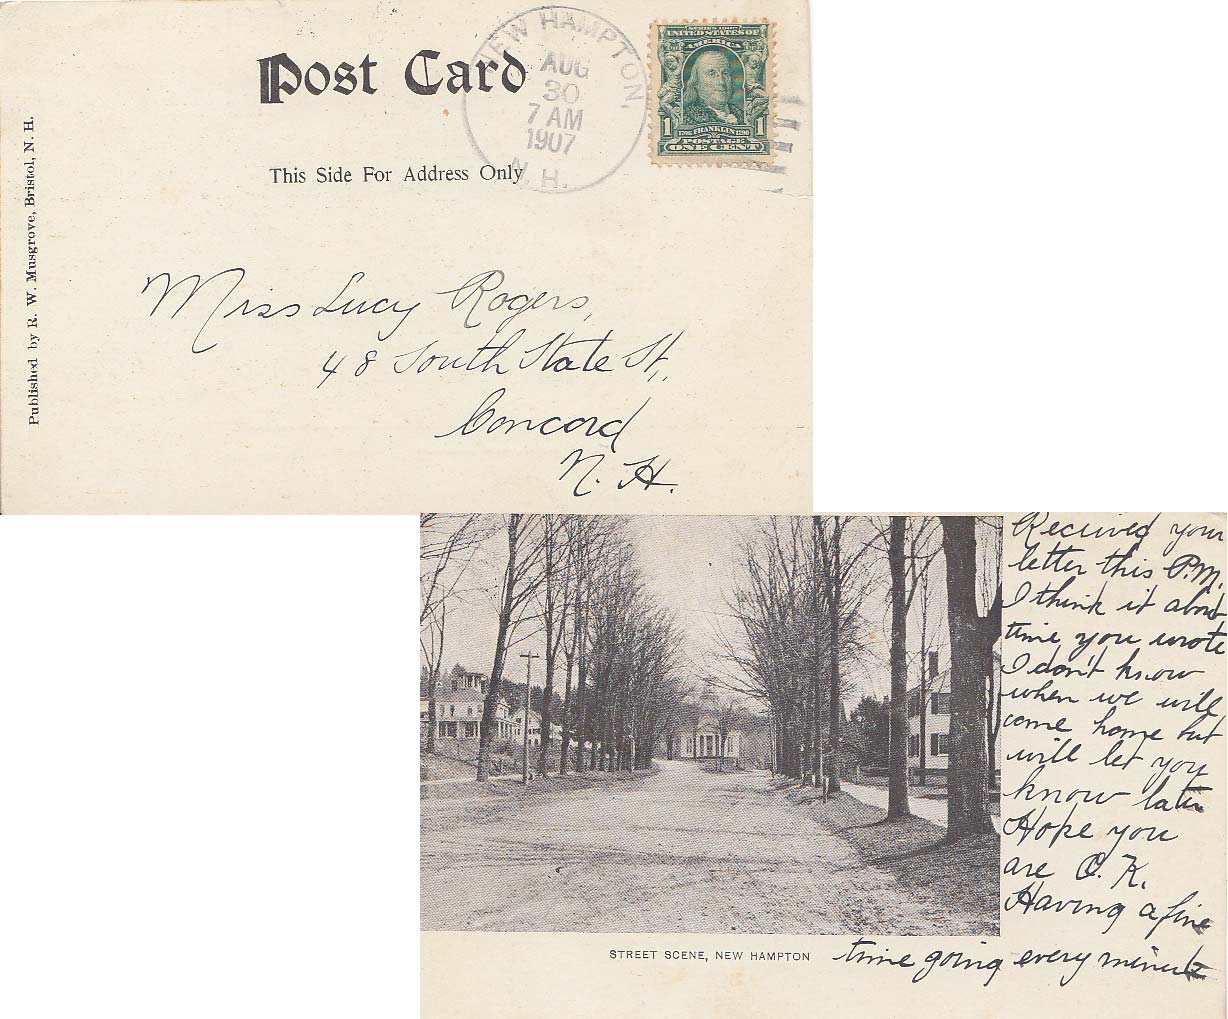 Post Card
This Side For Address Only
NEW HAMPTON,
AUG
30
7 AM
1907
N. H.
SERIES 1902
UNITED STATES OF
AMERICA
1 1706 FRANKLIN 1790 1
POSTAGE
ONE CENT
Published by R. W. Musgrove, Bristol, N. H.
Miss Lucy Rogers,
48 South State St.,
Concord
N. H.
Received your
letter this P.M.
I think it about
time you wrote
I don't know
when we will
come home but
will let you
know later
Hope you
are O. K.
Having a fine
time going every minute
STREET SCENE, NEW HAMPTON